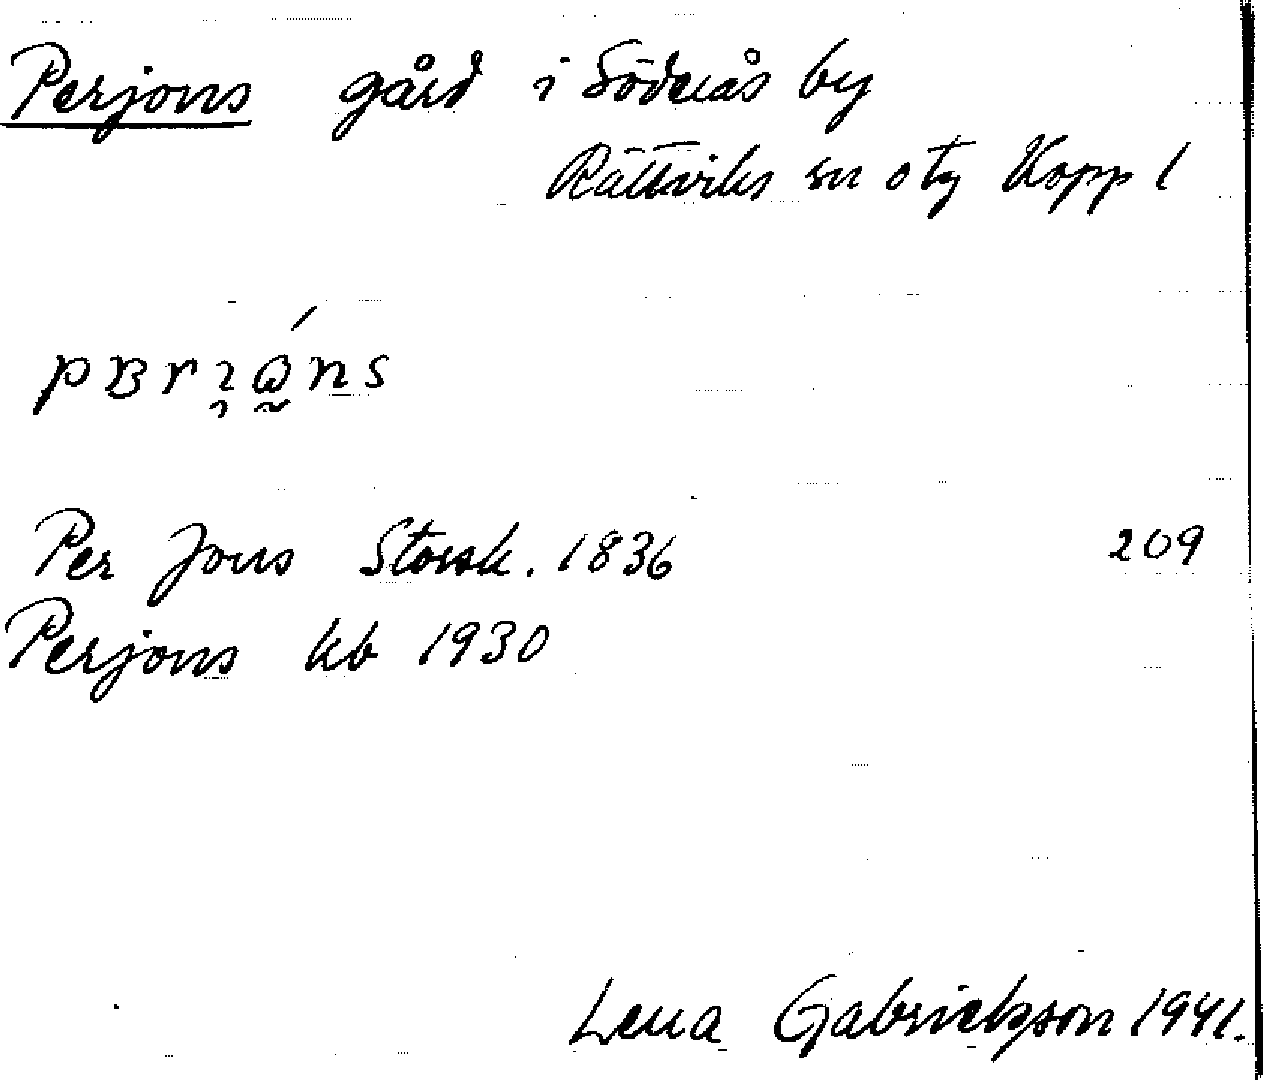 Perjons gård i Söderås by
Rättviks sn o tg Kopp l
Per Jons Storsk. 1836 209
Perjons kb 1930
Lena Gabrielsson 1941.